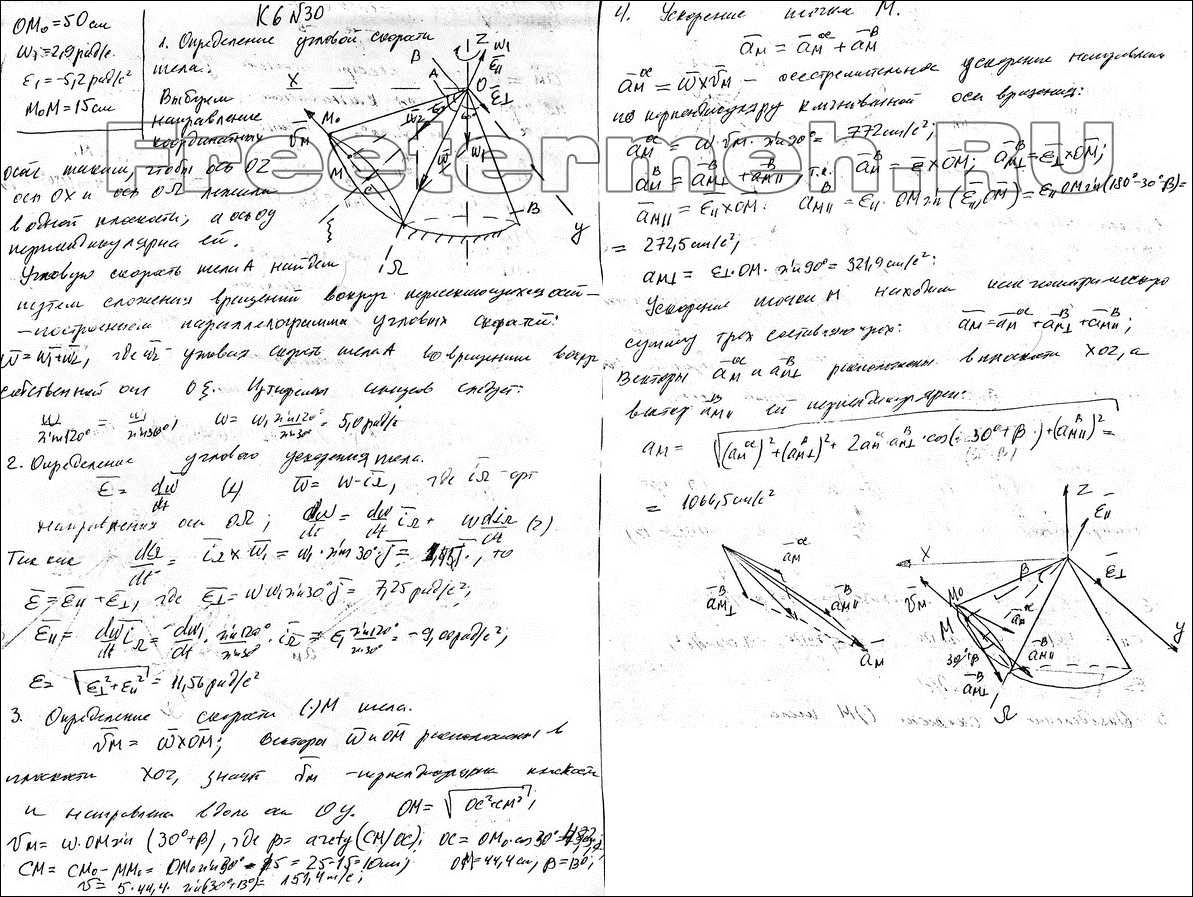 K6 №30
OM₀=50 см
ω₁=2,9 рад/с
ε₁=-5,2 рад/с²
M₀M=15см
1. Определение угловой скорости
тела.
Выбрем
направление
координатных
осей такими, чтобы ось OZ
ось OX и ось OΩ лежали
в одной плоскости, а ось Oy
перпендикулярна ей.
Угловую скорость тела A найдем
путем сложения вращений вокруг пересекающихся осей -
-построением параллелограмма угловых скоростей:
ω̄=ω̄₁+ω̄₂, где ω̄₂ - угловая скорость тела A во вращении вокруг
собственной оси Oξ. Из теоремы синусов следует:
ω/sin120° = ω₁/sin30°; ω= ω₁ sin120°/sin30° = 5,0 рад/с
2. Определение углового ускорения тела.
ε̄= dω̄/dt (1) ω̄= ω·ī_Ω, где ī_Ω - орт
направления оси OΩ; dω̄/dt = dω/dt ī_Ω + ω dī_Ω/dt (2)
Так как
ε̄=ε̄∥+ε̄⊥, где ε̄⊥= ω ω₁ sin30° j̄ = 7,25 рад/с²,
ε̄∥= dω/dt ī_Ω = dω₁/dt · sin120°/sin30° · ī_Ω = ε₁ sin120°/sin30° = -9,00 рад/с²;
ε= √(ε⊥²+ε∥²) = 11,56 рад/с²
3. Определение скорости (·)M тела.
v̄_M= ω̄×OM̄; Векторы ω̄ и OM̄ расположены в
плоскости XOZ, значит v̄_M -перпендикулярна плоскости
и направлена вдоль оси Oy. OM= √(OC²+CM²);
v_M= ω·OM sin(30°+β), где β= arctg(CM/OC); OC= OM₀·cos30°=
CM= CM₀-MM₀= OM₀ sin30°-15 = 25-15=10см; OM=44,4 см, β=13°;
v= 5·44,4· sin(30°+13°)= 151,4 м/с;
X
B
A
Z
ω̄₁
ε̄∥
O
ε̄⊥
M₀
v̄_M
ω̄₂
M
C
ω̄
ω̄₁
B
y
ξ
Ω
4. Ускорение точки M.
ā_M= ā_M^oc + ā_M^B
ā_M^oc = ω̄×v̄_M - осестремительное ускорение направлено
по перпендикуляру к мгновенной оси вращения:
a_M^oc = ω v_M · sin90° = 772см/с²;
ā_M^B = ā_M⊥^B + ā_M∥^B, т.к. ā_M^B= ε̄×OM̄; ā_M⊥^B=ε̄⊥×OM̄;
ā_M∥^B=ε̄∥×OM̄. a_M∥^B= ε∥·OM sin(ε̄∥,OM̄)=ε∥ OM sin(180°-30°-β)=
= 272,5 см/с²;
a_M⊥= ε⊥·OM· sin90°= 321,9 см/с²:
Ускорение точки M находим как геометрическую
сумму трех составляющих: ā_M=ā_M^oc+ā_M⊥^B+ā_M∥^B;
Векторы ā_M^oc и ā_M⊥^B расположены в плоскости XOZ, а
вектор ā_M∥^B ей перпендикулярен:
a_M= √((a_M^oc)²+(a_M⊥^B)²+ 2a_M^oc·a_M⊥^B·cos(30°+β)+(a_M∥^B)²) =
= 1066,5 см/с²
ā_M^oc
ā_M⊥^B
ā_M∥^B
ā_M
Z
ε̄∥
X
β
ε̄⊥
v̄_M
M₀
ā_M^oc
M
y
30°+β
ā_M∥^B
ā_M⊥^B
Ω
Freetermeh.RU